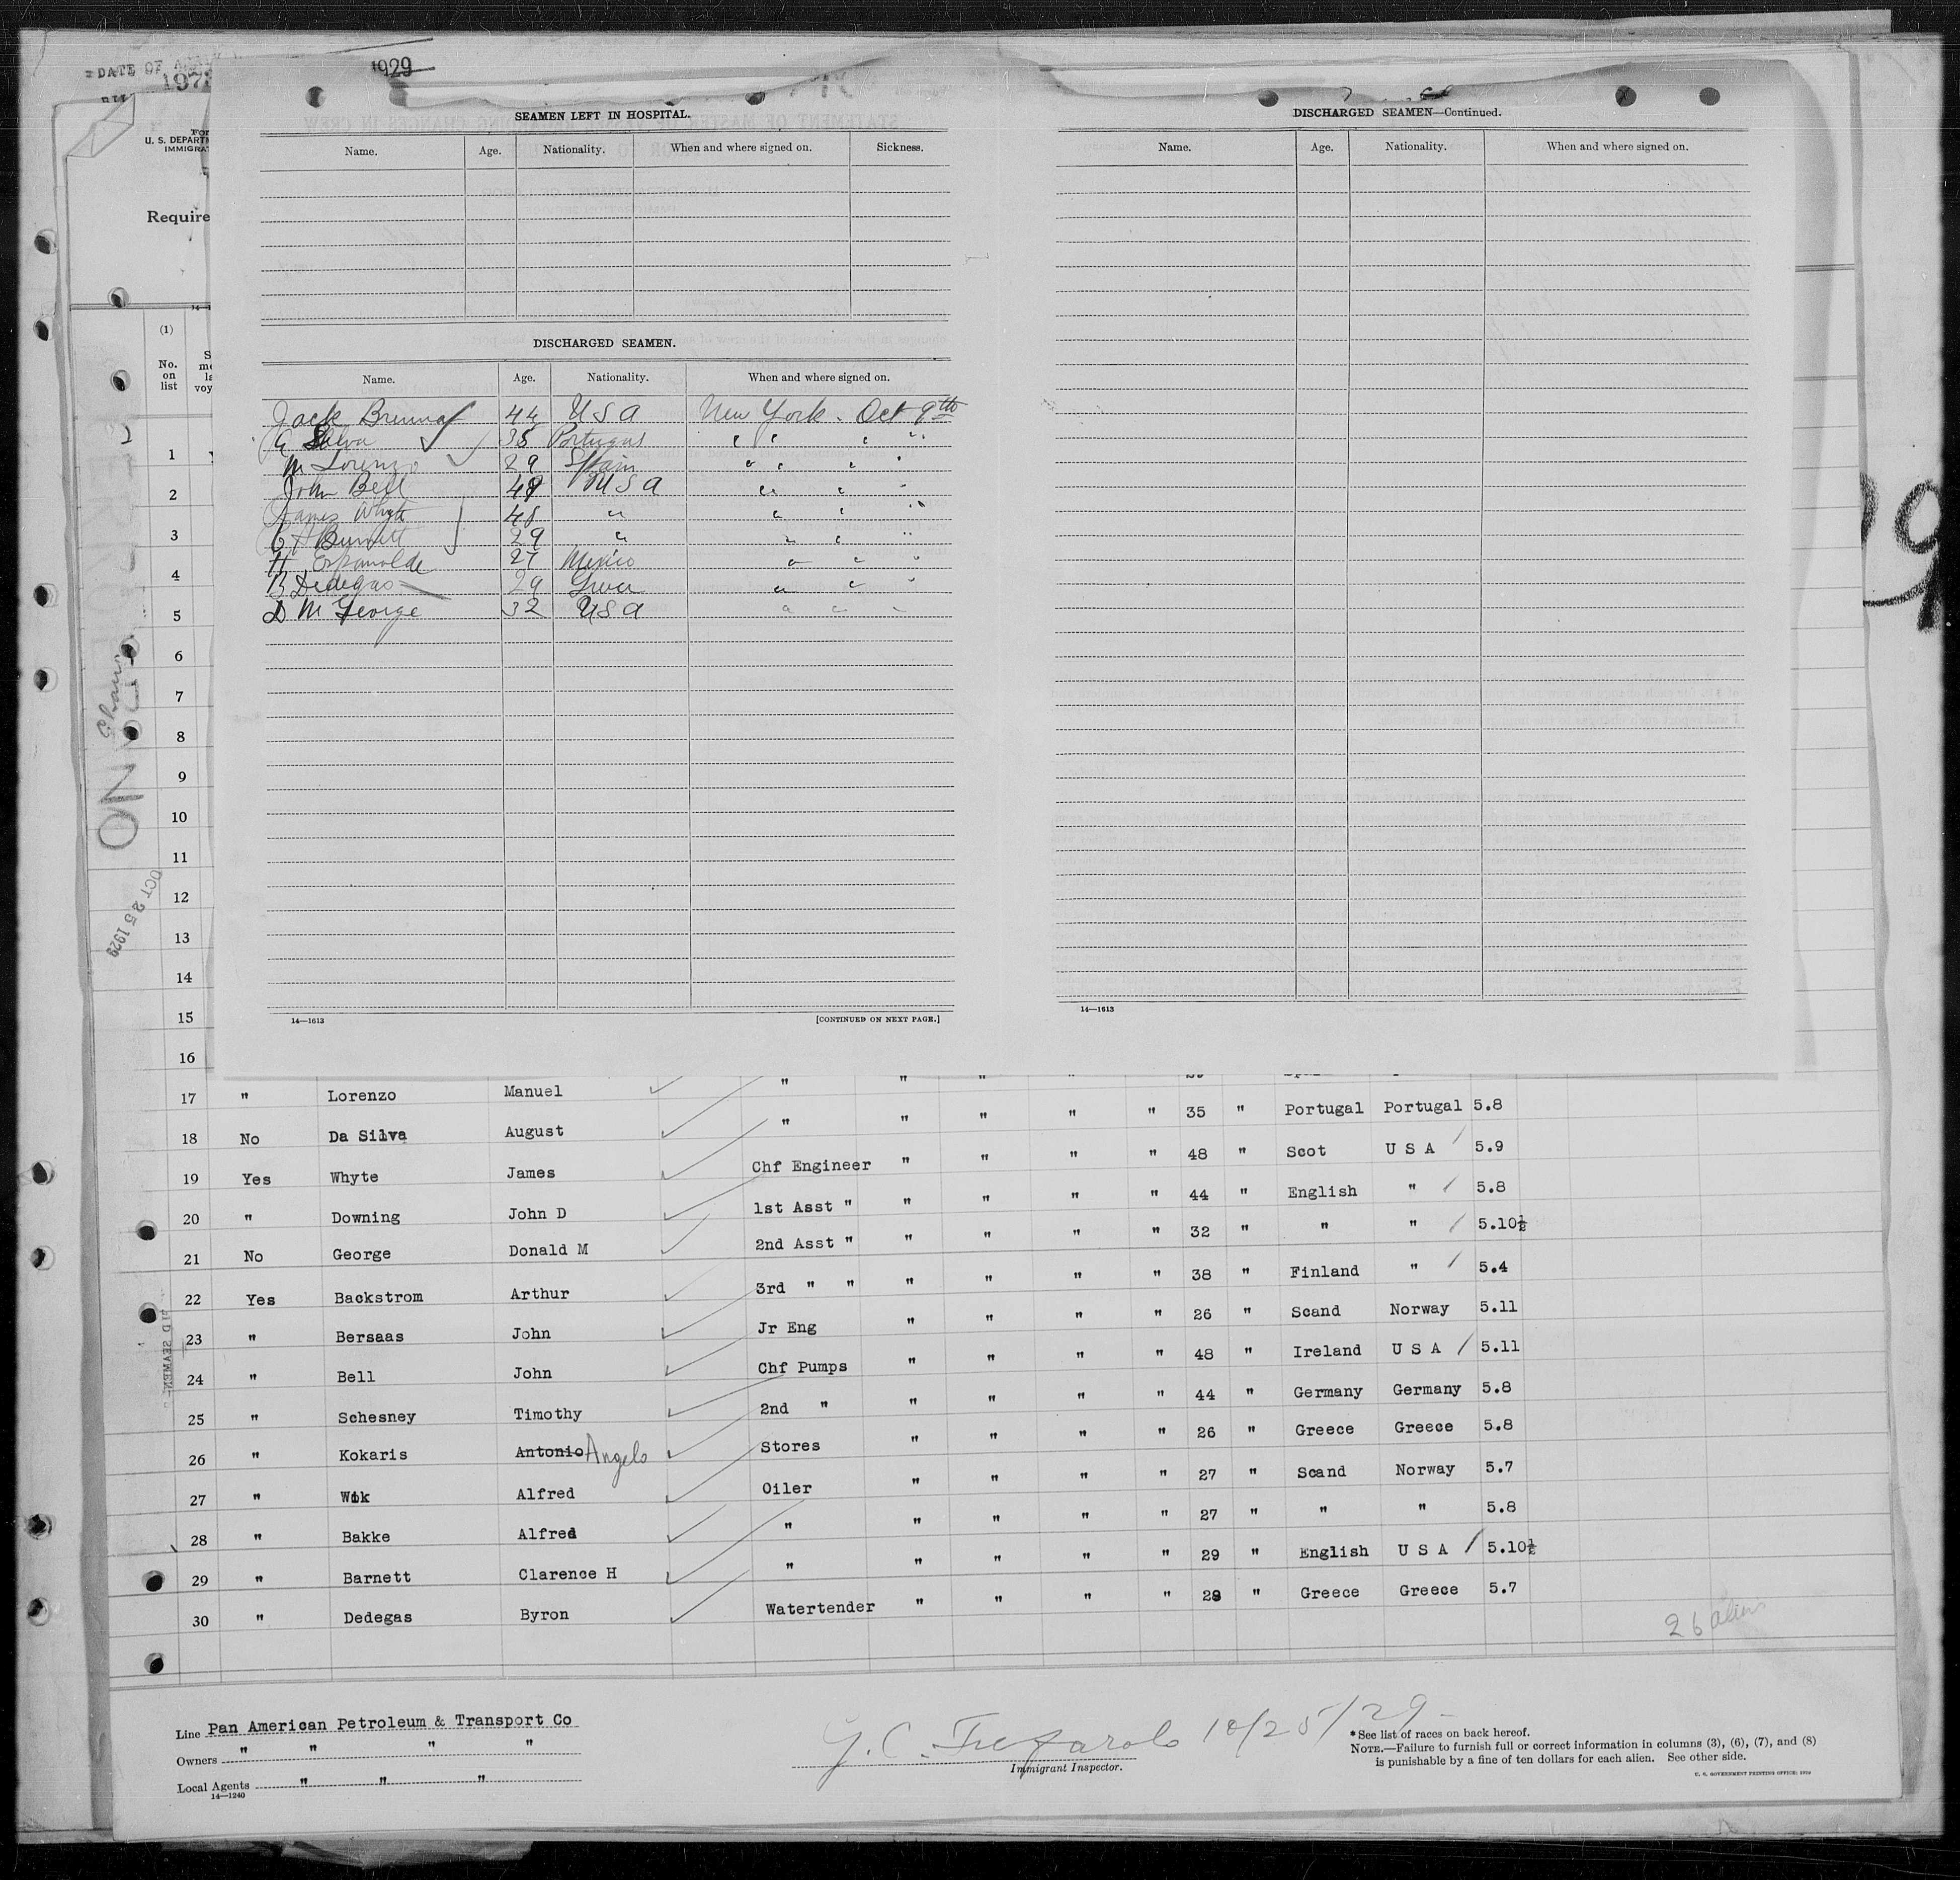 DATE OF
1929
U. S. DEPART
IMMIGRA
Require
(1)
No.
on
list
SEAMEN LEFT IN HOSPITAL.
Name. Age. Nationality. When and where signed on. Sickness.
DISCHARGED SEAMEN.
Name. Age. Nationality. When and where signed on.
Jack 44 U S A New York - Oct 9th
Silva 35 Portugal " " " "
M Lorenzo 29 Spain " " " "
John Bell 48 U S A " " "
James Whyte 48 " " " "
Burnett 29 " " " "
H 27 Mexico " " "
B Dedegas 29 " " "
D M George 32 U S A " " "
14—1613 [CONTINUED ON NEXT PAGE.]
DISCHARGED SEAMEN—Continued.
Name. Age. Nationality. When and where signed on.
14—1613
1
2
3
4
5
6
7
8
9
10
11
12
13
14
15
16
OCT 25 1929
17 " Lorenzo Manuel " " " "
18 No Da Silva August " " " " " 35 " Portugal Portugal 5.8
19 Yes Whyte James Chf Engineer " " " " 48 " Scot U S A 5.9
20 " Downing John D 1st Asst " " " " " 44 " English " 5.8
21 No George Donald M 2nd Asst " " " " " 32 " " " 5.10½
22 Yes Backstrom Arthur 3rd " " " " " " 38 " Finland " 5.4
23 " Bersaas John Jr Eng " " " " 26 " Scand Norway 5.11
24 " Bell John Chf Pumps " " " " 48 " Ireland U S A 5.11
25 " Schesney Timothy 2nd " " " " " 44 " Germany Germany 5.8
26 " Kokaris Antonio Angelo Stores " " " " 26 " Greece Greece 5.8
27 " Wik Alfred Oiler " " " " 27 " Scand Norway 5.7
28 " Bakke Alfred " " " " " 27 " " " 5.8
29 " Barnett Clarence H " " " " " 29 " English U S A 5.10½
30 " Dedegas Byron Watertender " " " " 28 " Greece Greece 5.7
26 alien
Line Pan American Petroleum & Transport Co
Owners " " " "
Local Agents " " "
14—1240
10/25/29
Immigrant Inspector.
* See list of races on back hereof.
NOTE.—Failure to furnish full or correct information in columns (3), (6), (7), and (8)
is punishable by a fine of ten dollars for each alien. See other side.